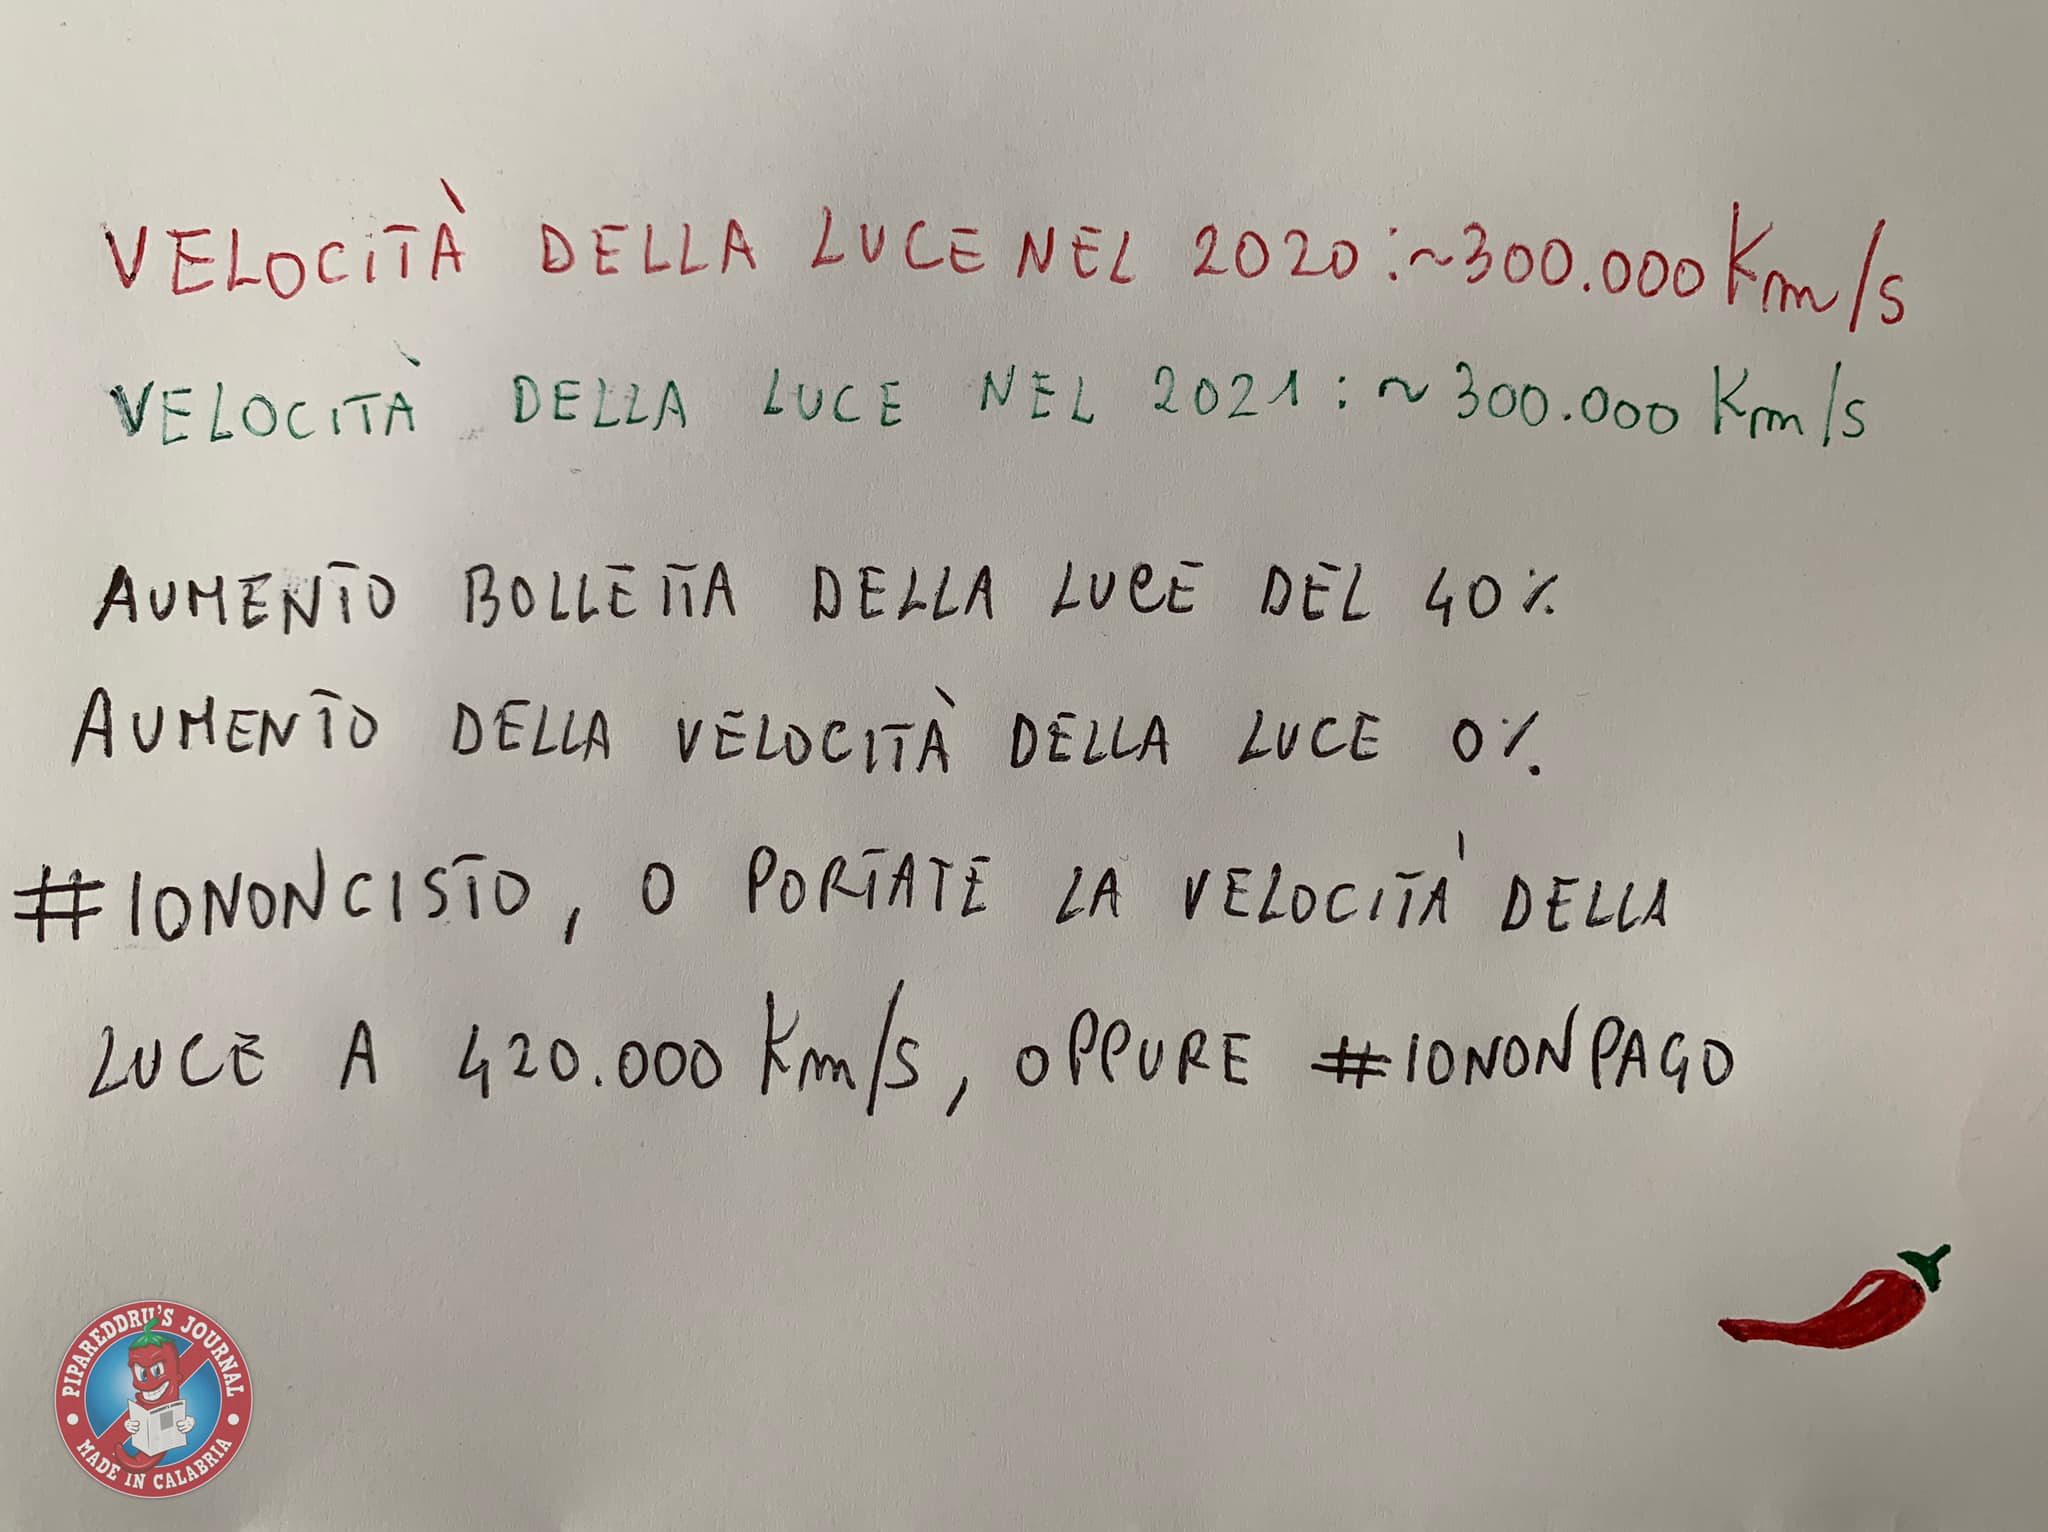 VELOCITÀ DELLA LUCE NEL 2020:~300.000 Km/s
VELOCITÀ DELLA LUCE NEL 2021:~300.000 Km/s
AUMENTO BOLLETTA DELLA LUCE DEL 40%
AUMENTO DELLA VELOCITÀ DELLA LUCE 0%.
#IONONCISTO, O PORTATE LA VELOCITÀ DELLA
LUCE A 420.000 Km/s, OPPURE #IONONPAGO
PIPAREDDRU'S JOURNAL
• MADE IN CALABRIA •